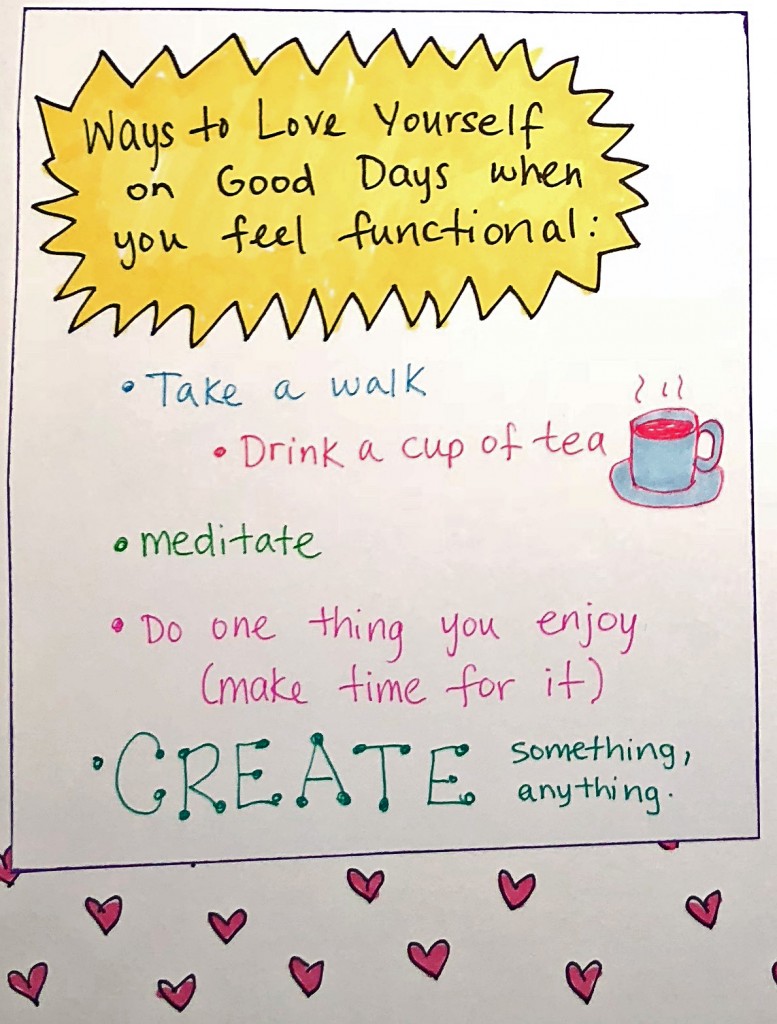 Ways to Love Yourself
on Good Days when
you feel functional:
• Take a walk
• Drink a cup of tea
• meditate
• Do one thing you enjoy
(make time for it)
• CREATE something,
anything.